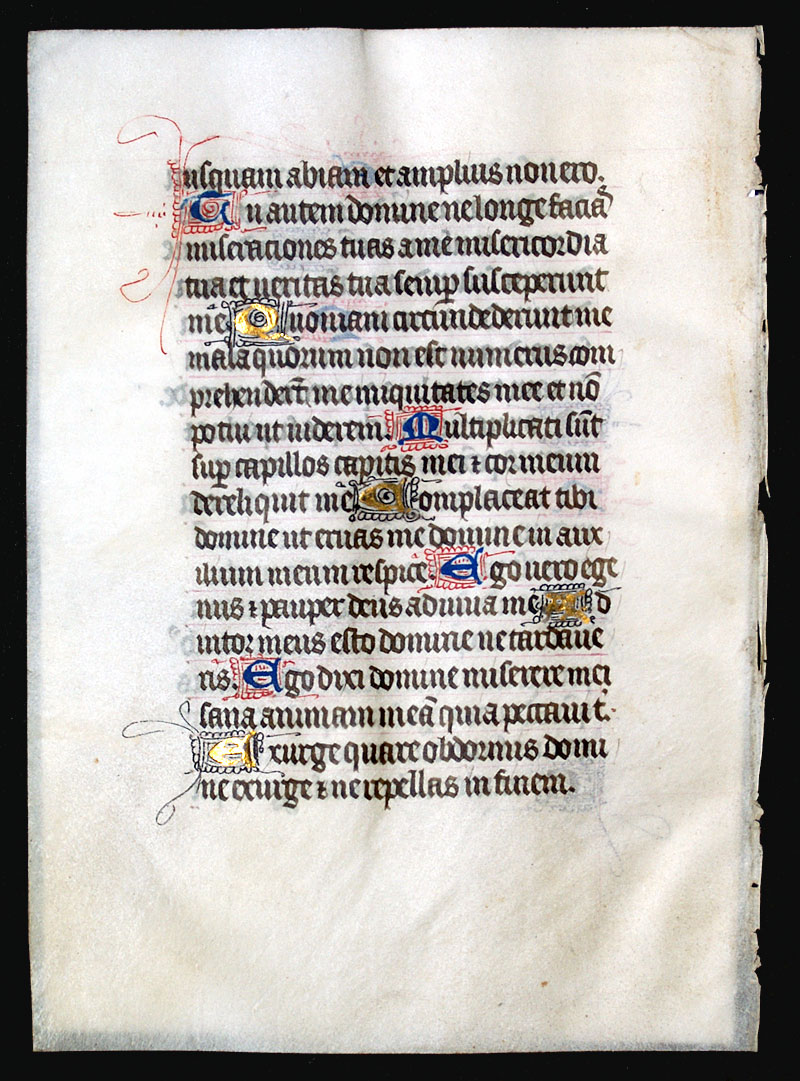 usquam abiam et amplius non ero.
Tu autem domine ne longe faciās
miseraciones tuas a me misericordia
tua et veritas tua semꝑ susceperunt
me Quoniam circumdederunt me
mala quorum non est numerus com
prehenderūt me iniquitates mee et nō
potui ut viderem. Multiplicati sūt
suꝑ capillos capitis mei ⁊ cor meum
dereliquit me Complaceat tibi
domine ut eruas me domine in aux
ilium meum respice. Ego vero ege
nus ⁊ pauper deus adiuva me Ad
iutor meus esto domine ne tardave
ris. Ego dixi domine miserere mei
sana animam meā quia peccavi t.
Exurge quare obdormis domi
ne exurge ⁊ ne repellas in finem.